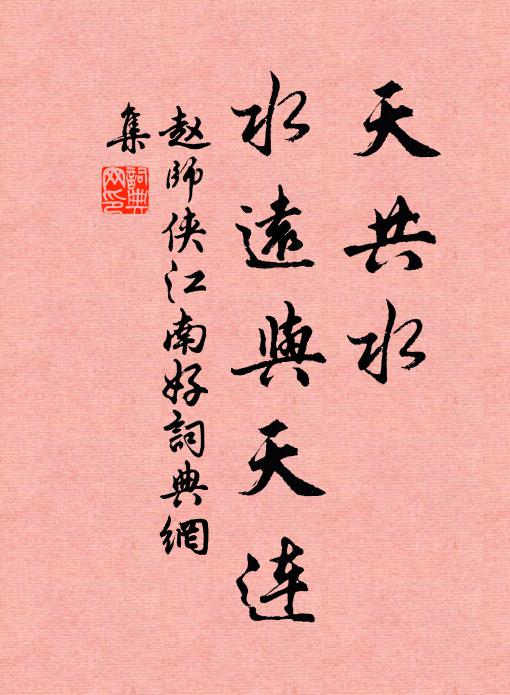 天共水
水遠與天連
赵師侠江南好詞典網
集
詞典网印